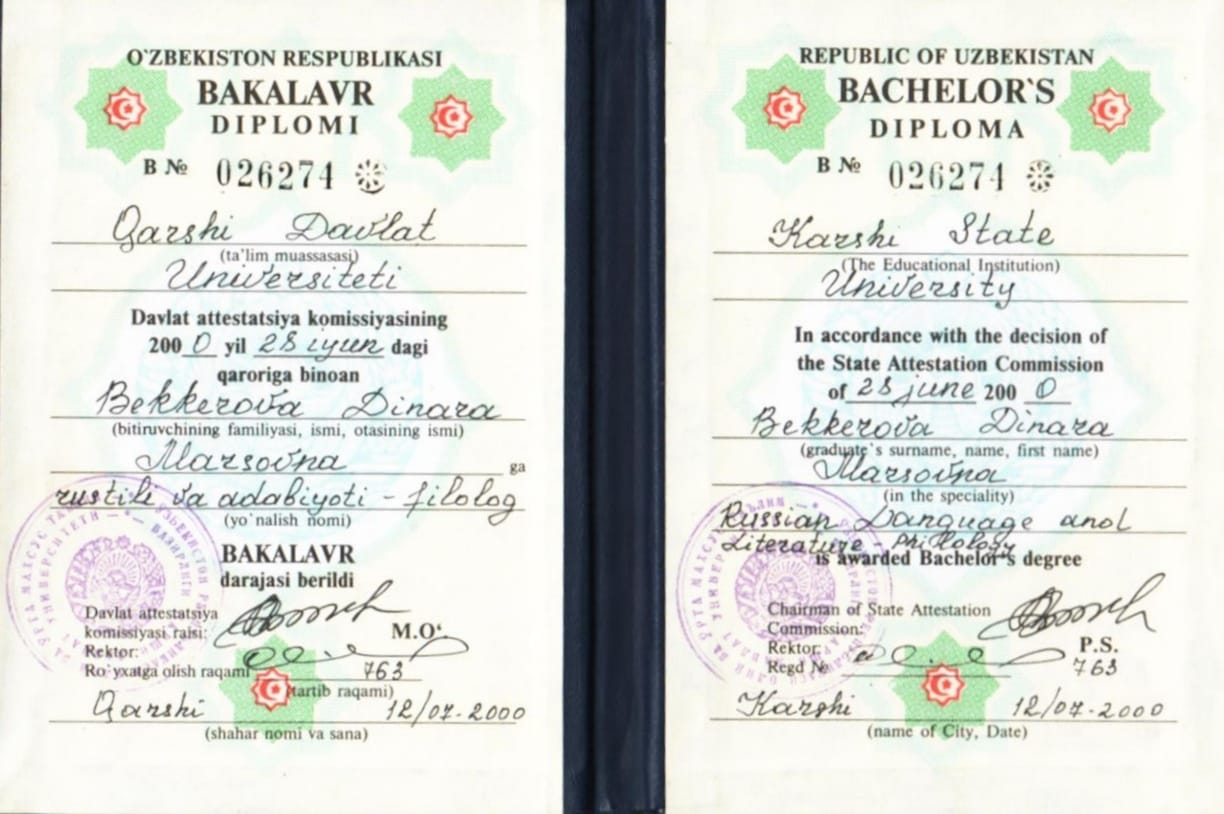 O`ZBEKISTON RESPUBLIKASI
BAKALAVR
DIPLOMI
B № 026274
Qarshi Davlat
(ta'lim muassasasi)
Universiteti
Davlat attestatsiya komissiyasining
200 0 yil 28 iyun dagi
qaroriga binoan
Bekkerova Dinara
(bitiruvchining familiyasi, ismi, otasining ismi)
Marsovna ga
rus tili va adabiyoti - filolog
(yo`nalish nomi)
BAKALAVR
darajasi berildi
Davlat attestatsiya
komissiyasi raisi:
M.O‘
Rektor:
Ro`yxatga olish raqami 763
(tartib raqami)
Qarshi 12/07-2000
(shahar nomi va sana)
REPUBLIC OF UZBEKISTAN
BACHELOR`S
DIPLOMA
B № 026274
Karshi State
(The Educational Institution)
University
In accordance with the decision of
the State Attestation Commission
of 28 june 200 0
Bekkerova Dinara
(graduate`s surname, name, first name)
Marsovna
(in the speciality)
Russian Language and
Literature Philology
is awarded Bachelor`s degree
Chairman of State Attestation
Commission:
Rektor: P.S.
Regd № 763
Karshi 12/07-2000
(name of City, Date)